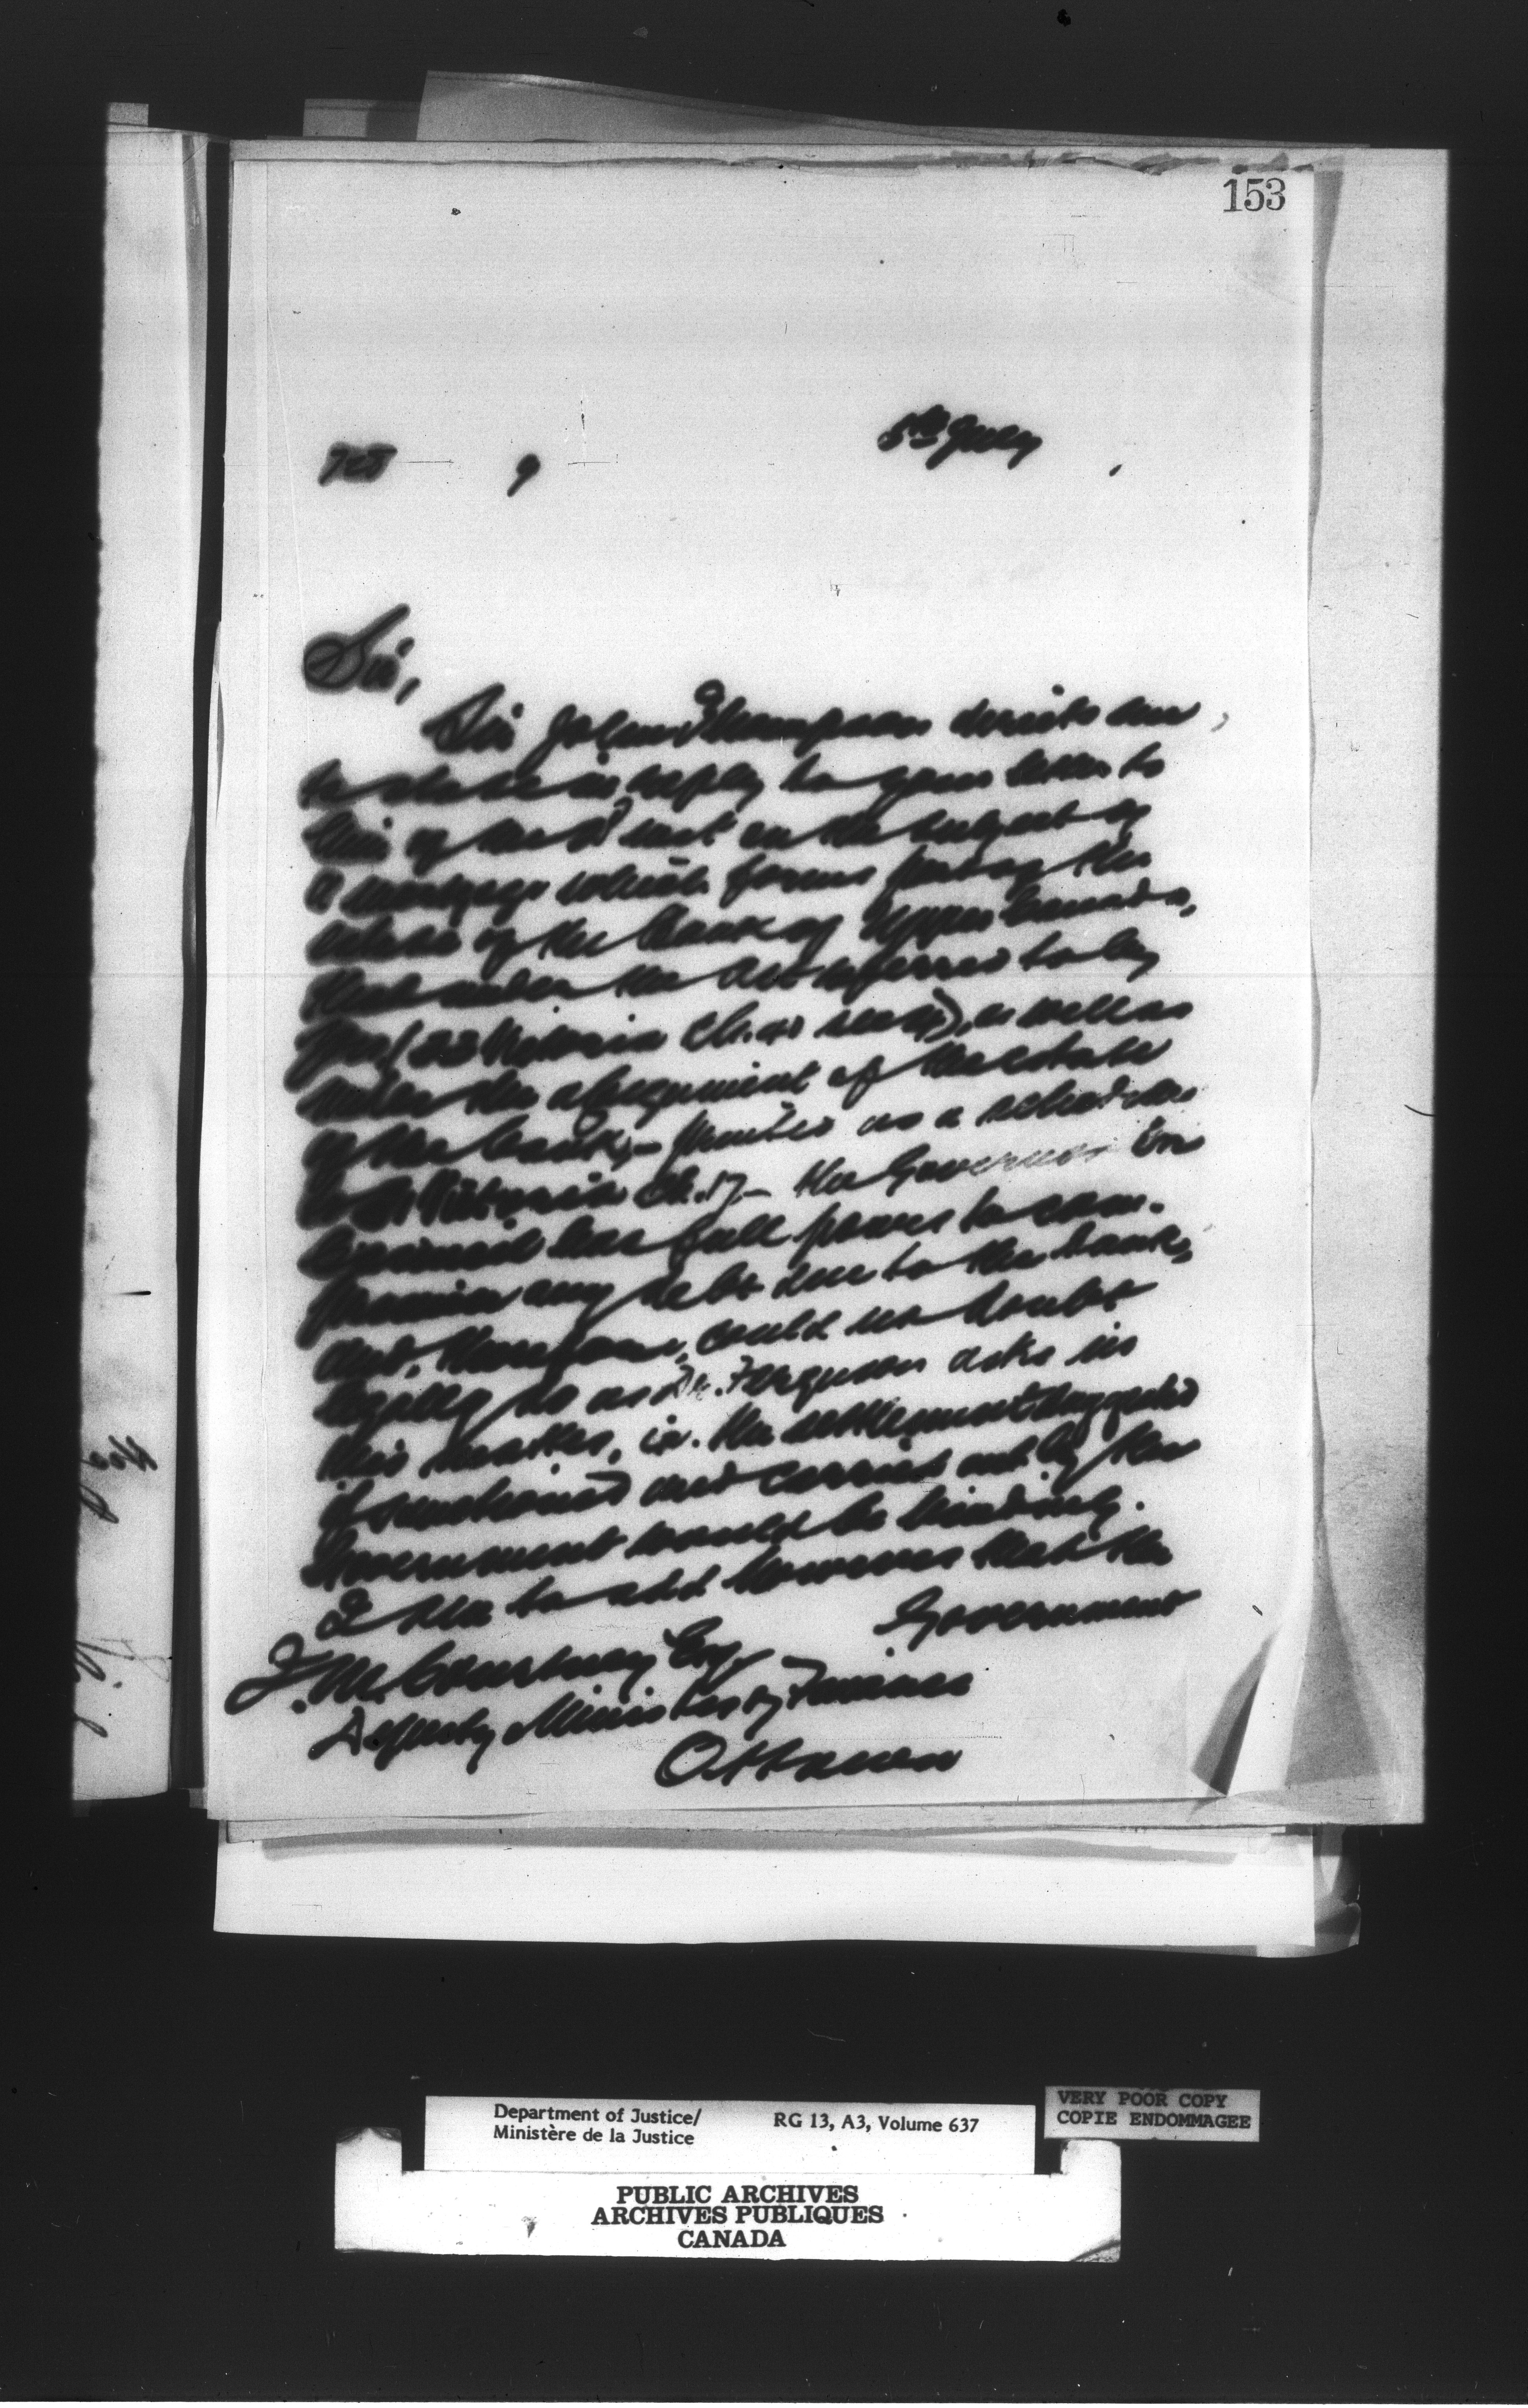 153
5th July
9
Sir,
Sir John Thompson directs me,
to state in reply to your letter to
him of the inst on the subject of
a mortgage which forms part of the
estate of the Bank of Upper Canada,
that under the Act referred to by
you (33 Victoria Ch. 40 sec ), as well as
under the assignment of the estate
of the bank, – printed as a schedule
to 31 Victoria Ch. 17, – the Governor in
Council has full power to com-
promise any debt due to the bank,
and, therefore, could no doubt
legally do as Dr. Ferguson asks in
this matter, i.e. the settlement suggested
if sanctioned and carried out by the
Government would be binding.
I am to add however that the
Government
J. M. Courtney Esq.
Deputy Minister of Finance
Ottawa
Department of Justice/
Ministère de la Justice
RG 13, A3, Volume 637
VERY POOR COPY
COPIE ENDOMMAGEE
PUBLIC ARCHIVES
ARCHIVES PUBLIQUES
CANADA